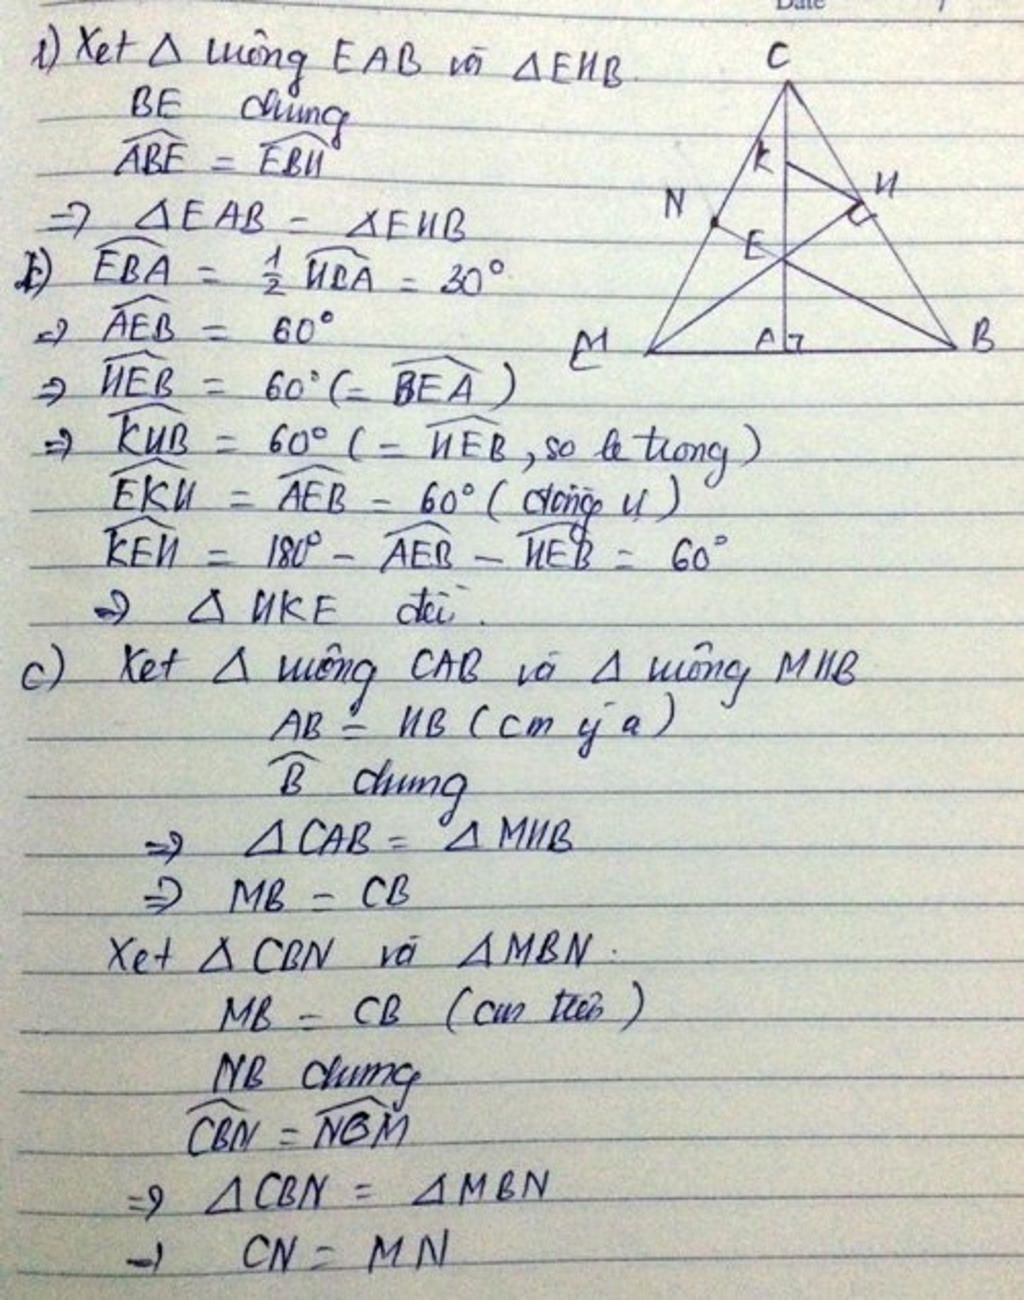 Date
1) Xet Δ vuông EAB và ΔEHB.
BE chung
ABE = EBH
=> ΔEAB = ΔEHB
b) EBA = 1/2 HBA = 30°
=> AEB = 60°
=> HEB = 60° (= BEA)
=> KHB = 60° (= HEB, so le trong)
EKH = AEB = 60° (đồng vị)
KEH = 180° - AEB - HEB = 60°
=> Δ HKE đều.
c) Xet Δ vuông CAB và Δ vuông MHB
AB = HB (cm ý a)
B chung
=> ΔCAB = ΔMHB
=> MB = CB
Xet Δ CBN và ΔMBN.
MB = CB (cm trên)
NB chung
CBN = NBM
=> ΔCBN = ΔMBN
=> CN = MN
C
K
H
N
E
M
A
B